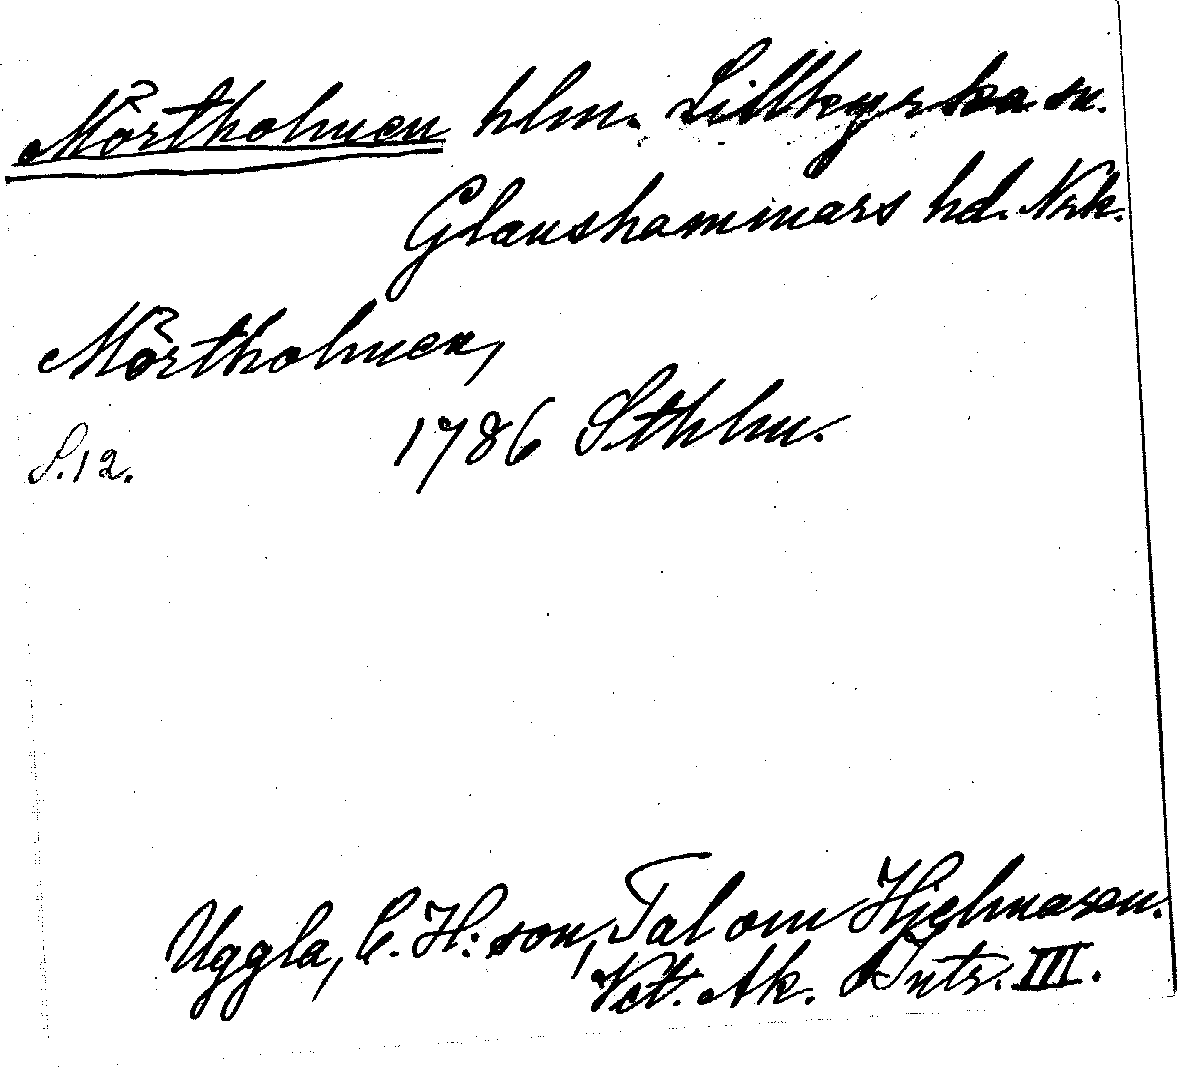 Mörtholmen hlm. Lillkyrka sn.
Glanshammars hd. Nrk.
Mörtholmen,
1786 Sthlm.
S. 12.
Uggla, C. H:son, Tal om Hjelmaren.
Vet. Ak. Intr. III.